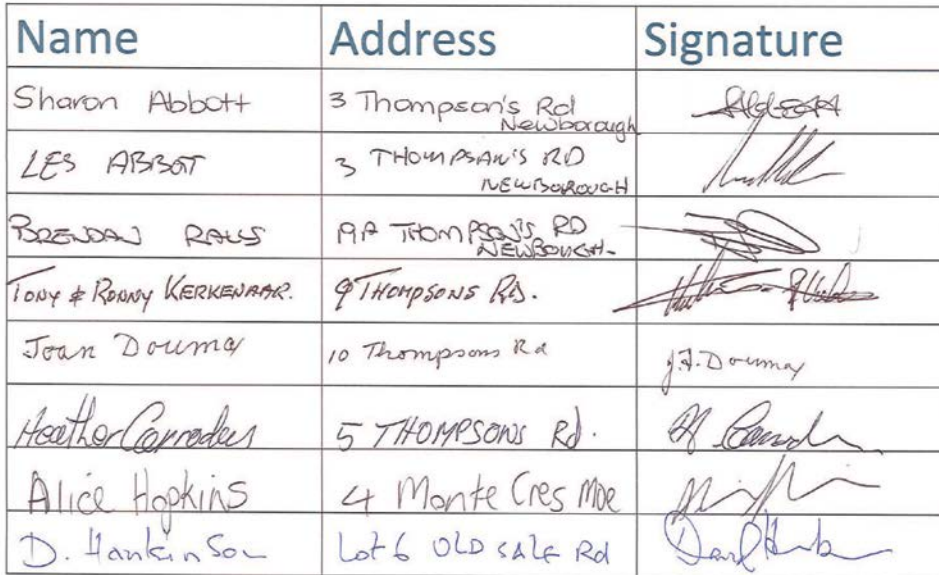 Name Address Signature
Sharon Abbott 3 Thompson's Rd
Newborough
LES ABBOT 3 THOMPSAN'S RD
NEWBOROUGH
BRENDAN RAWS 19A THOMPSON'S RD
NEWBOUGH-
TONY & RONNY KERKENAAR. 9 THOMPSONS RD.
Joan Douma 10 Thompsons Rd J.F. Douma
Heather Carrodus 5 THOMPSONS Rd.
Alice Hopkins 4 Monte Cres Moe
D. Hankinson Lot 6 OLD SALE Rd